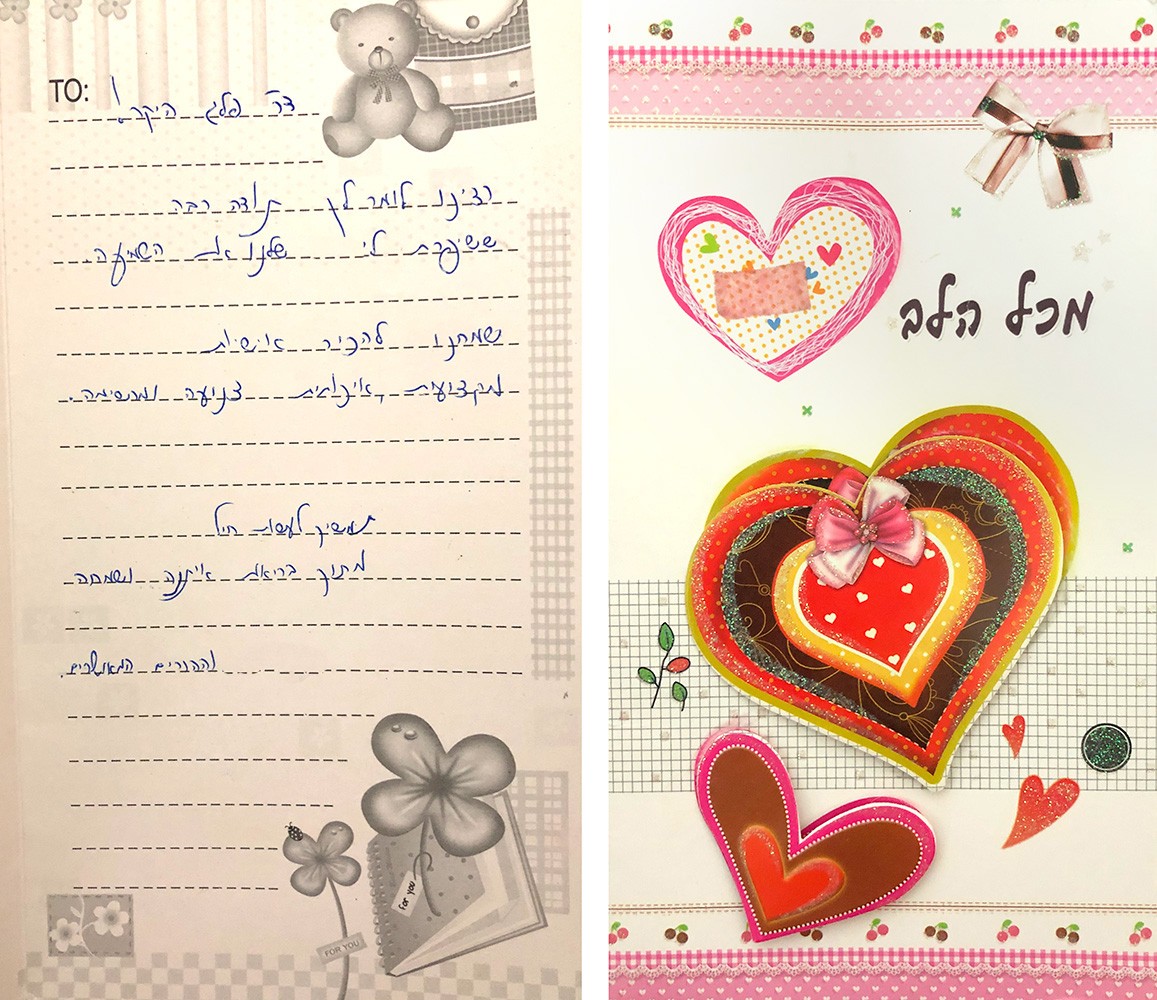 TO: דר פלג היקר!
רצינו לומר לך תודה רבה
ששיקרת לי שלנו את השמיעה
שמחנו להכיר אישיות
מקצועית, איכותית צנועה ומרשימה.
תמשיך לעשות חיל
מתוך בריאות איתנה ושמחה
ההורים המאושרים.
for you
FOR YOU
מכל הלב